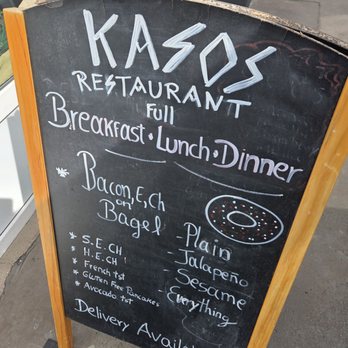 KASOS
RESTAURANT
Full
Breakfast • Lunch • Dinner
* Bacon, E, Ch
on
Bagel
- Plain
- Jalapeño
- Sesame
- Everything
* S.E.CH
* H.E.CH!
* French tst
* Gluten Free Pancakes
* Avocado tst
Delivery